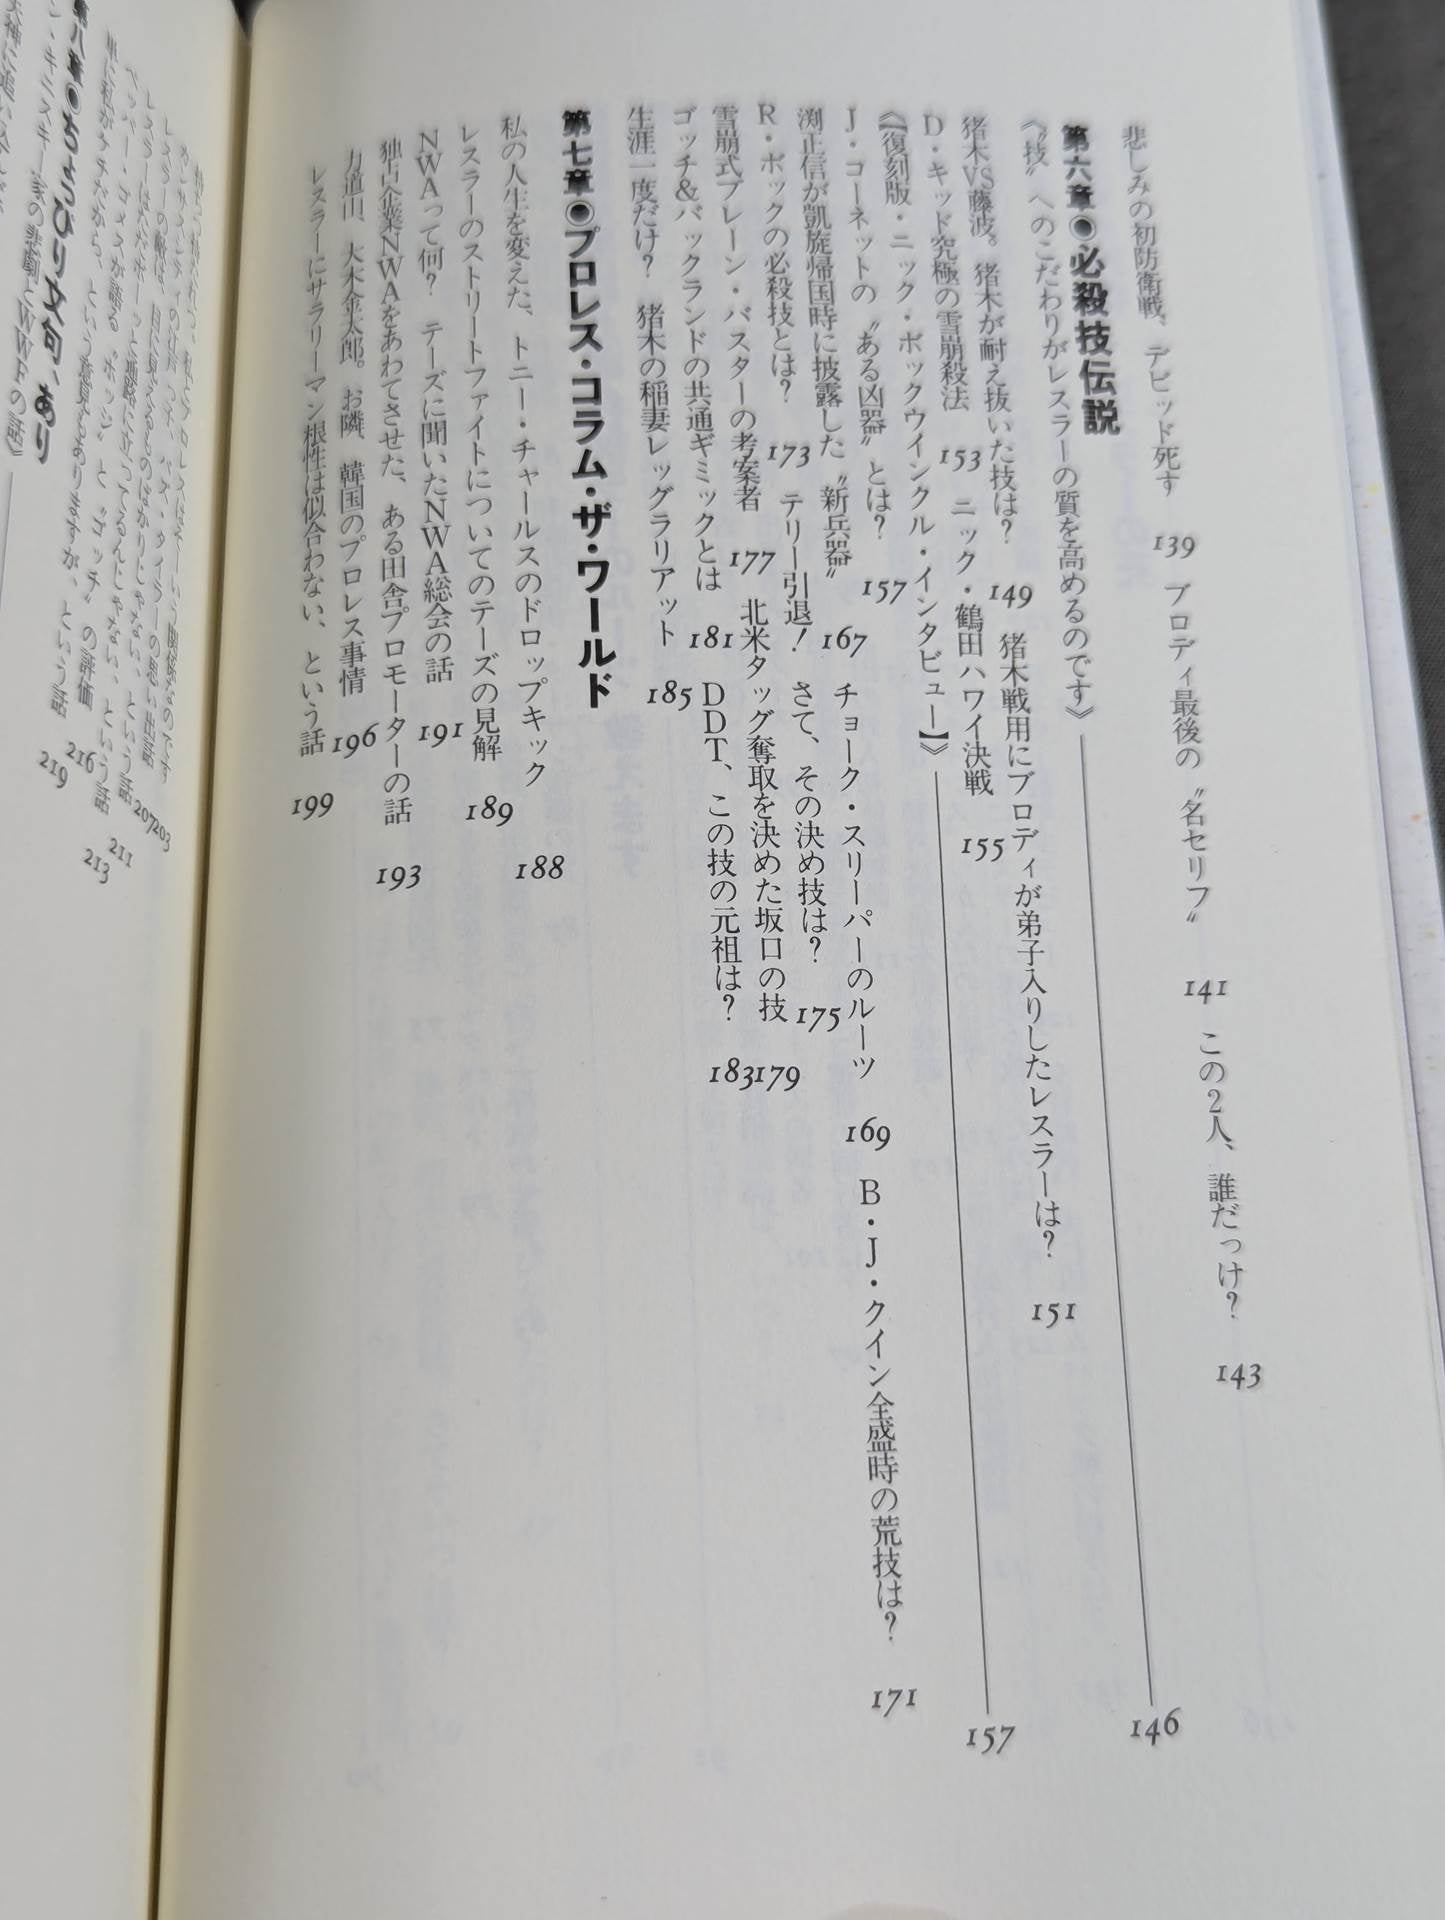 悲しみの初防衛戦、デビッド死す 139 ブロディ最後の〝名セリフ〟 141 この2人、誰だっけ? 143
第六章◉必殺技伝説
《〝技〟へのこだわりがレスラーの質を高めるのです》 146
猪木VS藤波。猪木が耐え抜いた技は? 149 猪木戦用にブロディが弟子入りしたレスラーは? 151
D・キッド究極の雪崩殺法 153 ニック・鶴田ハワイ決戦 155
《【復刻版・ニック・ボックウインクル・インタビュー】》 157
J・コーネットの〝ある凶器〟とは? 157
渕正信が凱旋帰国時に披露した〝新兵器〟 167 チョーク・スリーパーのルーツ 169 B・J・クイン全盛時の荒技は? 171
R・ボックの必殺技とは? 173 テリー引退! さて、その決め技は? 175
雪崩式ブレーン・バスターの考案者 177 北米タッグ奪取を決めた坂口の技 179
ゴッチ&バックランドの共通ギミックとは 181 DDT、この技の元祖は? 183
生涯一度だけ? 猪木の稲妻レッグラリアット 185
第七章◉プロレス・コラム・ザ・ワールド
私の人生を変えた、トニー・チャールスのドロップキック 188
レスラーのストリートファイトについてのテーズの見解 189
NWAって何? テーズに聞いたNWA総会の話 191
独占企業NWAをあわてさせた、ある田舎プロモーターの話 193
力道山、大木金太郎。お隣、韓国のプロレス事情 196
レスラーにサラリーマン根性は似合わない、という話 199
203
レスラーの 207
レスラーはただボーッと 211
ペッパー・ゴメスが語る〝ホッジ〟と〝ゴッチ〟の評価 216
という意見もありますが、という話 213
第八章◉ちょっぴり文句、あり
219